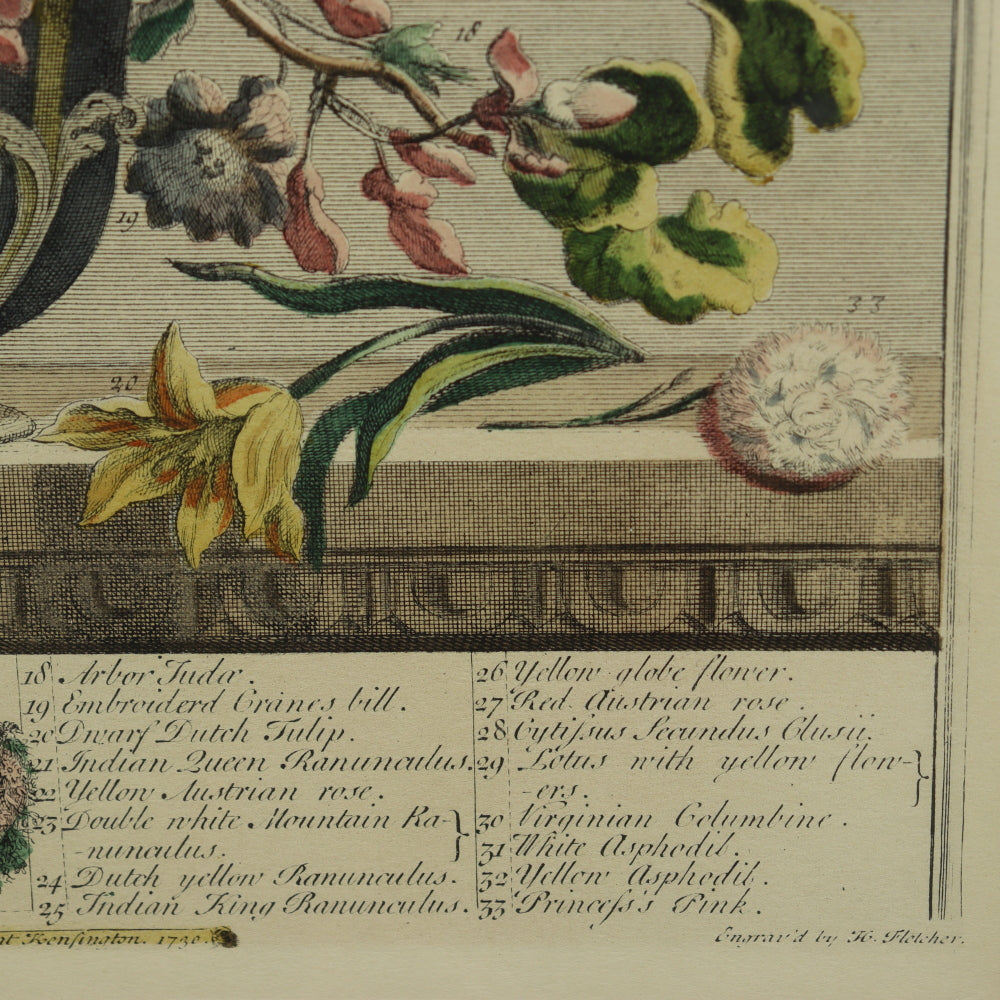 18
19
33
20
18 Arbor Judæ.
19 Embroiderd Cranes bill.
20 Dwarf Dutch Tulip.
21 Indian Queen Ranunculus.
22 Yellow Austrian rose.
23 Double white Mountain Ra-
-nunculus.
24 Dutch yellow Ranunculus.
25 Indian King Ranunculus.
26 Yellow globe flower.
27 Red Austrian rose.
28 Cytissus Secundus Clusii.
29 Lotus with yellow flow-
-ers.
30 Virginian Columbine.
31 White Asphodil.
32 Yellow Asphodil.
33 Princess's Pink.
at Kensington. 1730.
Engrav'd by H. Fletcher.